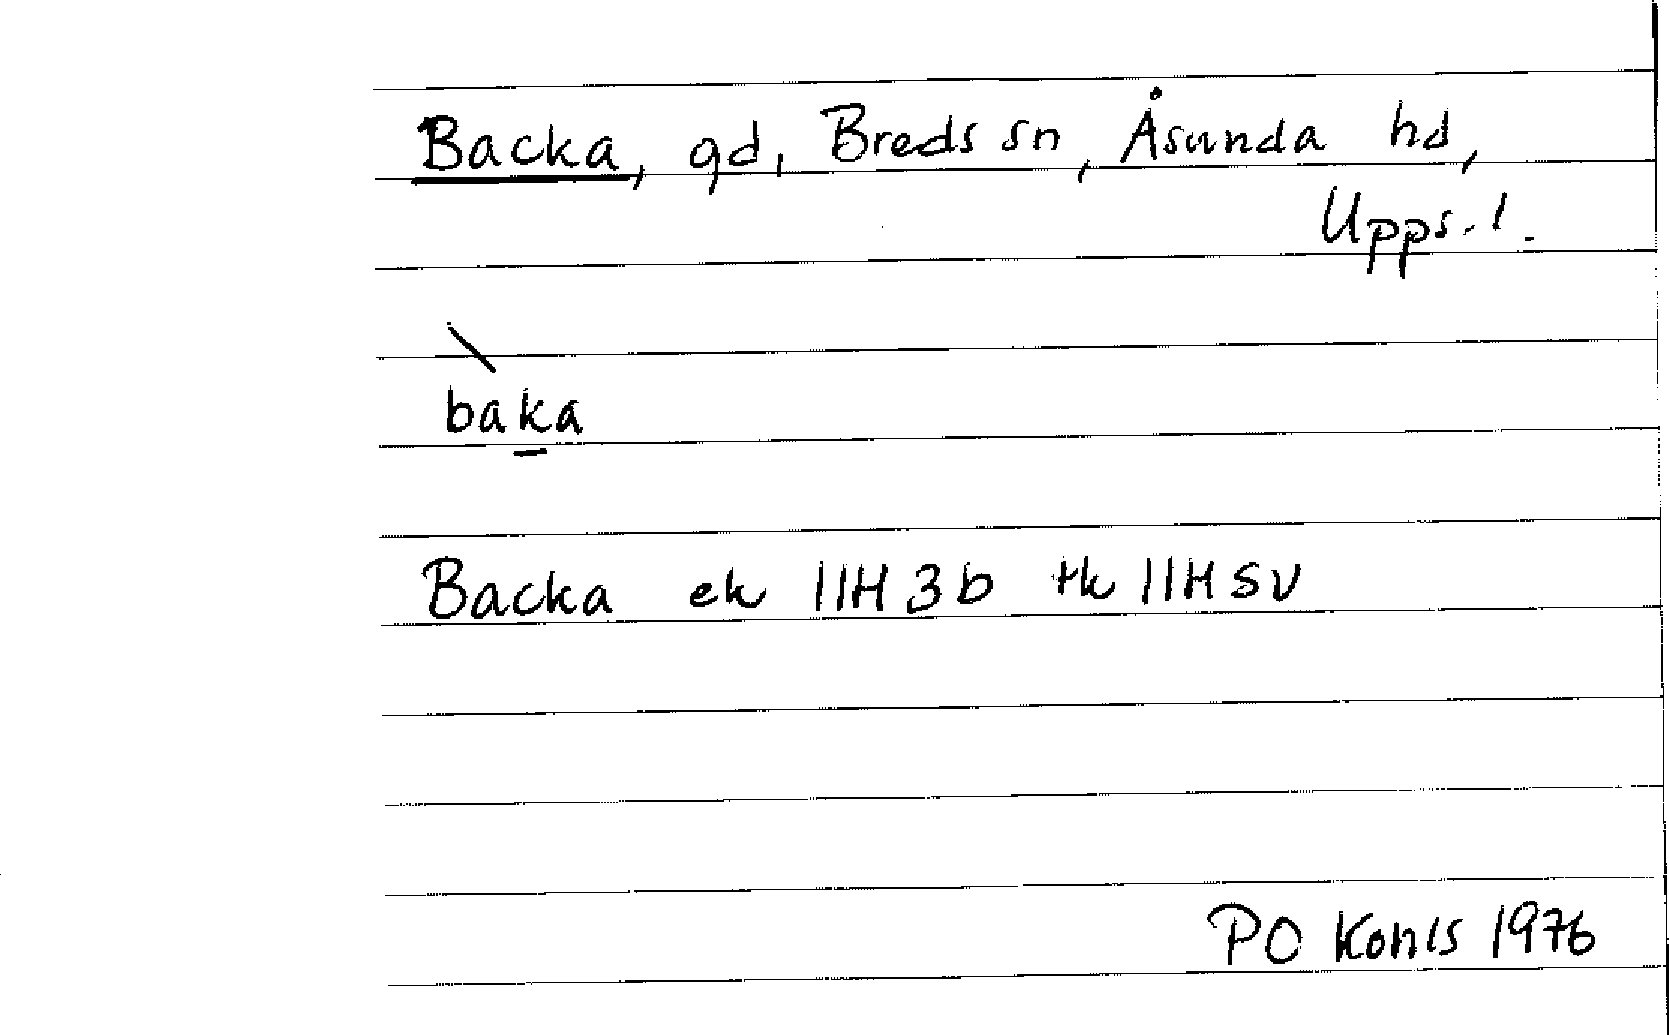 Backa, gd, Breds sn, Åsunda hd,
Upps. l.
baka
Backa ek 11H 3b tk 11H SV
PO 1976